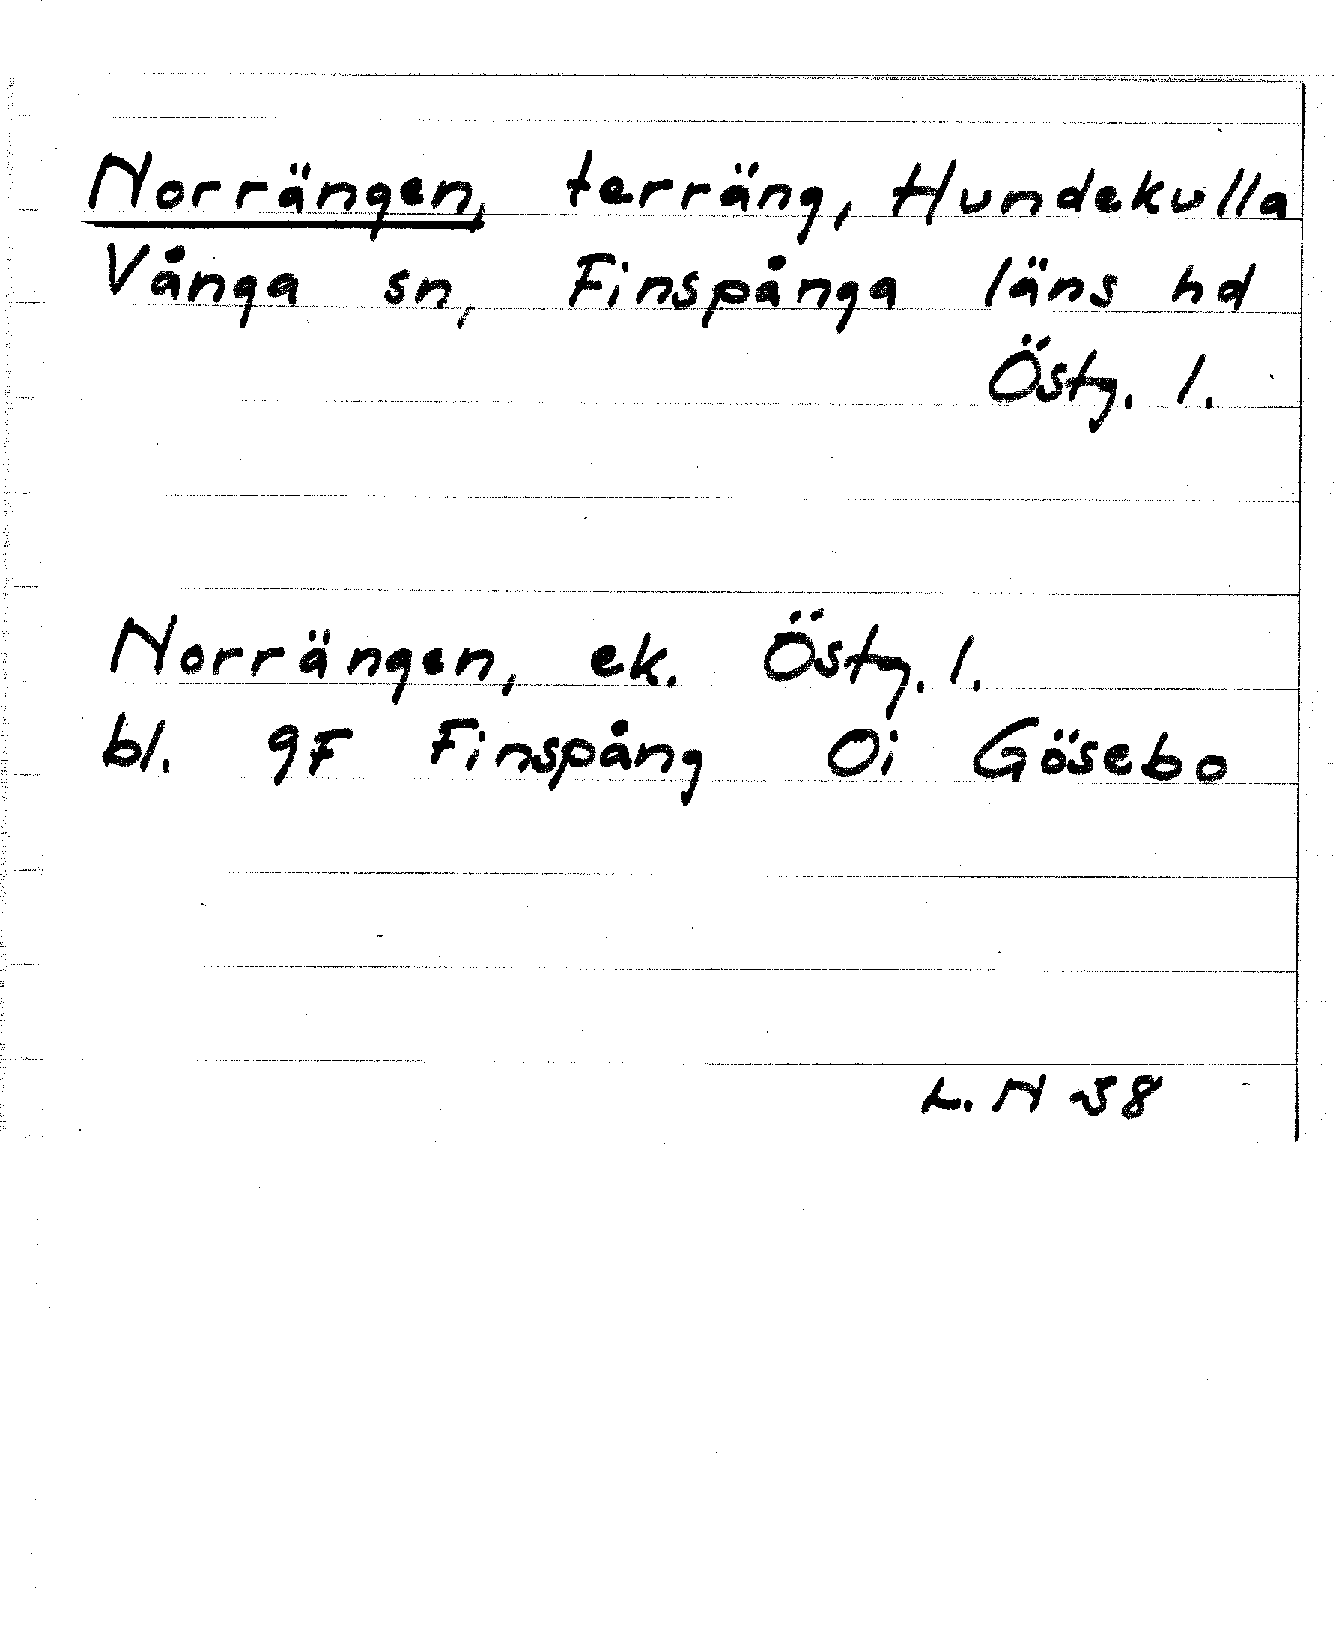 Norrängen, terräng, Hundekulla
Vånga sn, Finspånga läns hd
Östg. l.
Norrängen, ek. Östg. l.
bl. 9F Finspång 0i Gösebo
L. N 58